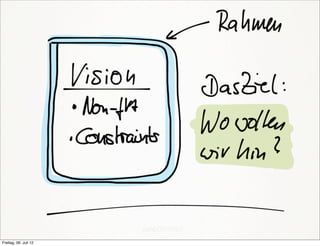 Rahmen
Vision
• Non-fkt
• Constraints
Das Ziel:
Wo wollen
wir hin?
Freitag, 06. Juli 12